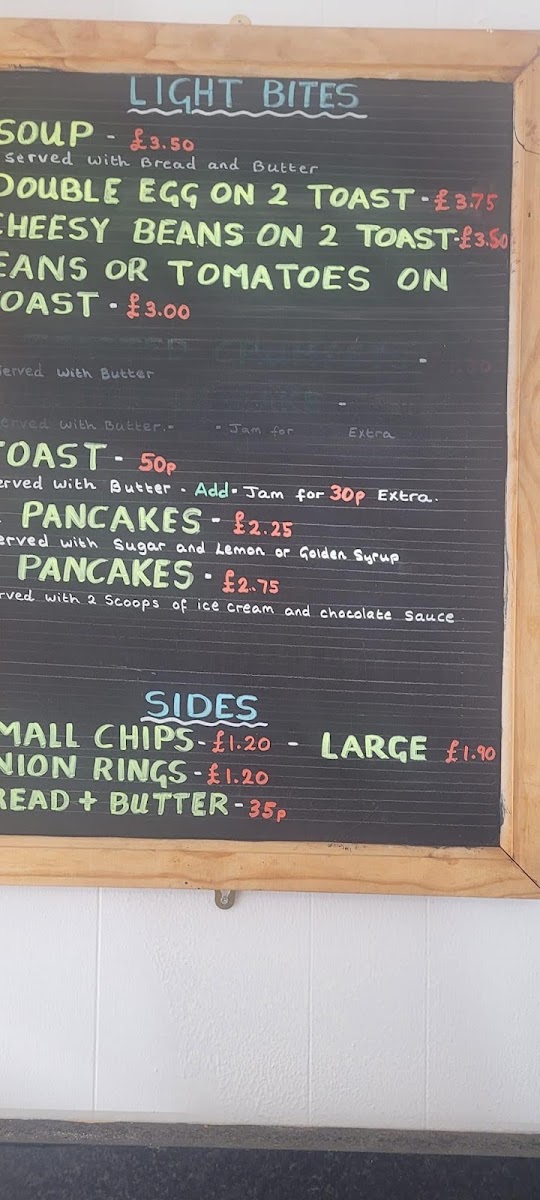 LIGHT BITES
SOUP - £3.50
served with Bread and Butter
DOUBLE EGG ON 2 TOAST - £3.75
CHEESY BEANS ON 2 TOAST - £3.50
EANS OR TOMATOES ON
OAST - £3.00
-
erved with Butter
-
erved with Butter. - - Jam for Extra
TOAST - 50p
erved with Butter - Add - Jam for 30p Extra.
PANCAKES - £2.25
erved with Sugar and Lemon or Golden Syrup
PANCAKES - £2.75
rved with 2 Scoops of ice cream and chocolate Sauce
SIDES
MALL CHIPS - £1.20 - LARGE £1.90
NION RINGS - £1.20
READ + BUTTER - 35p